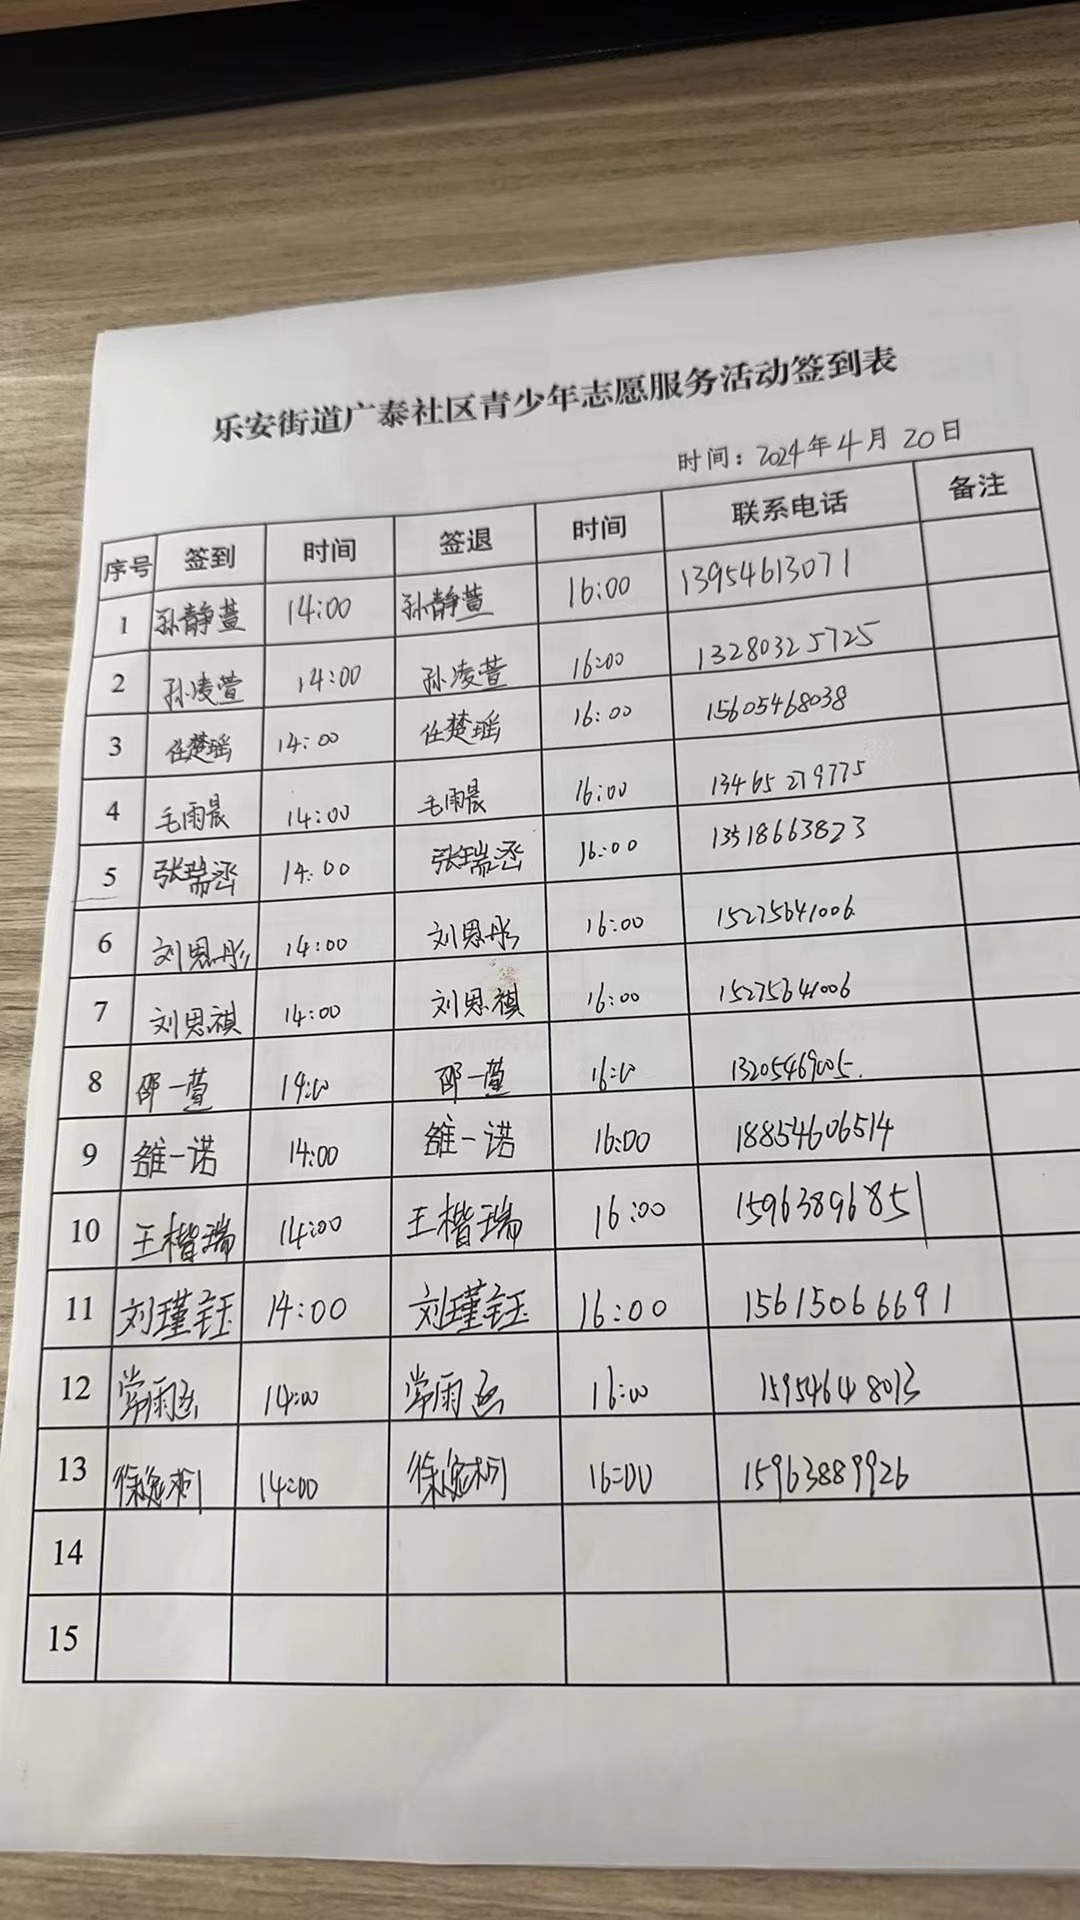 乐安街道广泰社区青少年志愿服务活动签到表
时间：2024年4月20日
序号 签到 时间 签退 时间 联系电话 备注
1 孙静萱 14:00 孙静萱 16:00 13954613071
2 孙凌萱 14:00 孙凌萱 16:00 13280325725
3 任楚瑶 14:00 任楚瑶 16:00 15605468038
4 毛雨晨 14:00 毛雨晨 16:00 13465279775
5 张瑞丞 14:00 张瑞丞 16:00 13518663823
6 刘恩彤 14:00 刘恩彤 16:00 15275641006
7 刘恩祺 14:00 刘恩祺 16:00 15275641006
8 邵一萱 14:00 邵一萱 16:00 13205469005.
9 雒一诺 14:00 雒一诺 16:00 18854606514
10 王楷瑞 14:00 王楷瑞 16:00 15963896851
11 刘瑾钰 14:00 刘瑾钰 16:00 15615066691
12 14:00 16:00 15954648013
13 14:00 16:00 15963889926
14
15